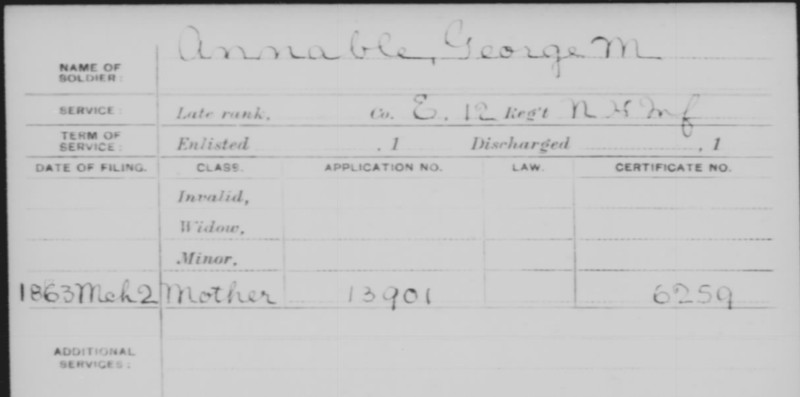 NAME OF SOLDIER: Annable, George M
SERVICE: Late rank, Co. E. 12 Reg't N H Inf
TERM OF SERVICE: Enlisted , 1 Discharged , 1
DATE OF FILING. CLASS. APPLICATION NO. LAW. CERTIFICATE NO.
Invalid,
Widow,
Minor,
1863 Mch 2 Mother 13901 6259
ADDITIONAL SERVICES: